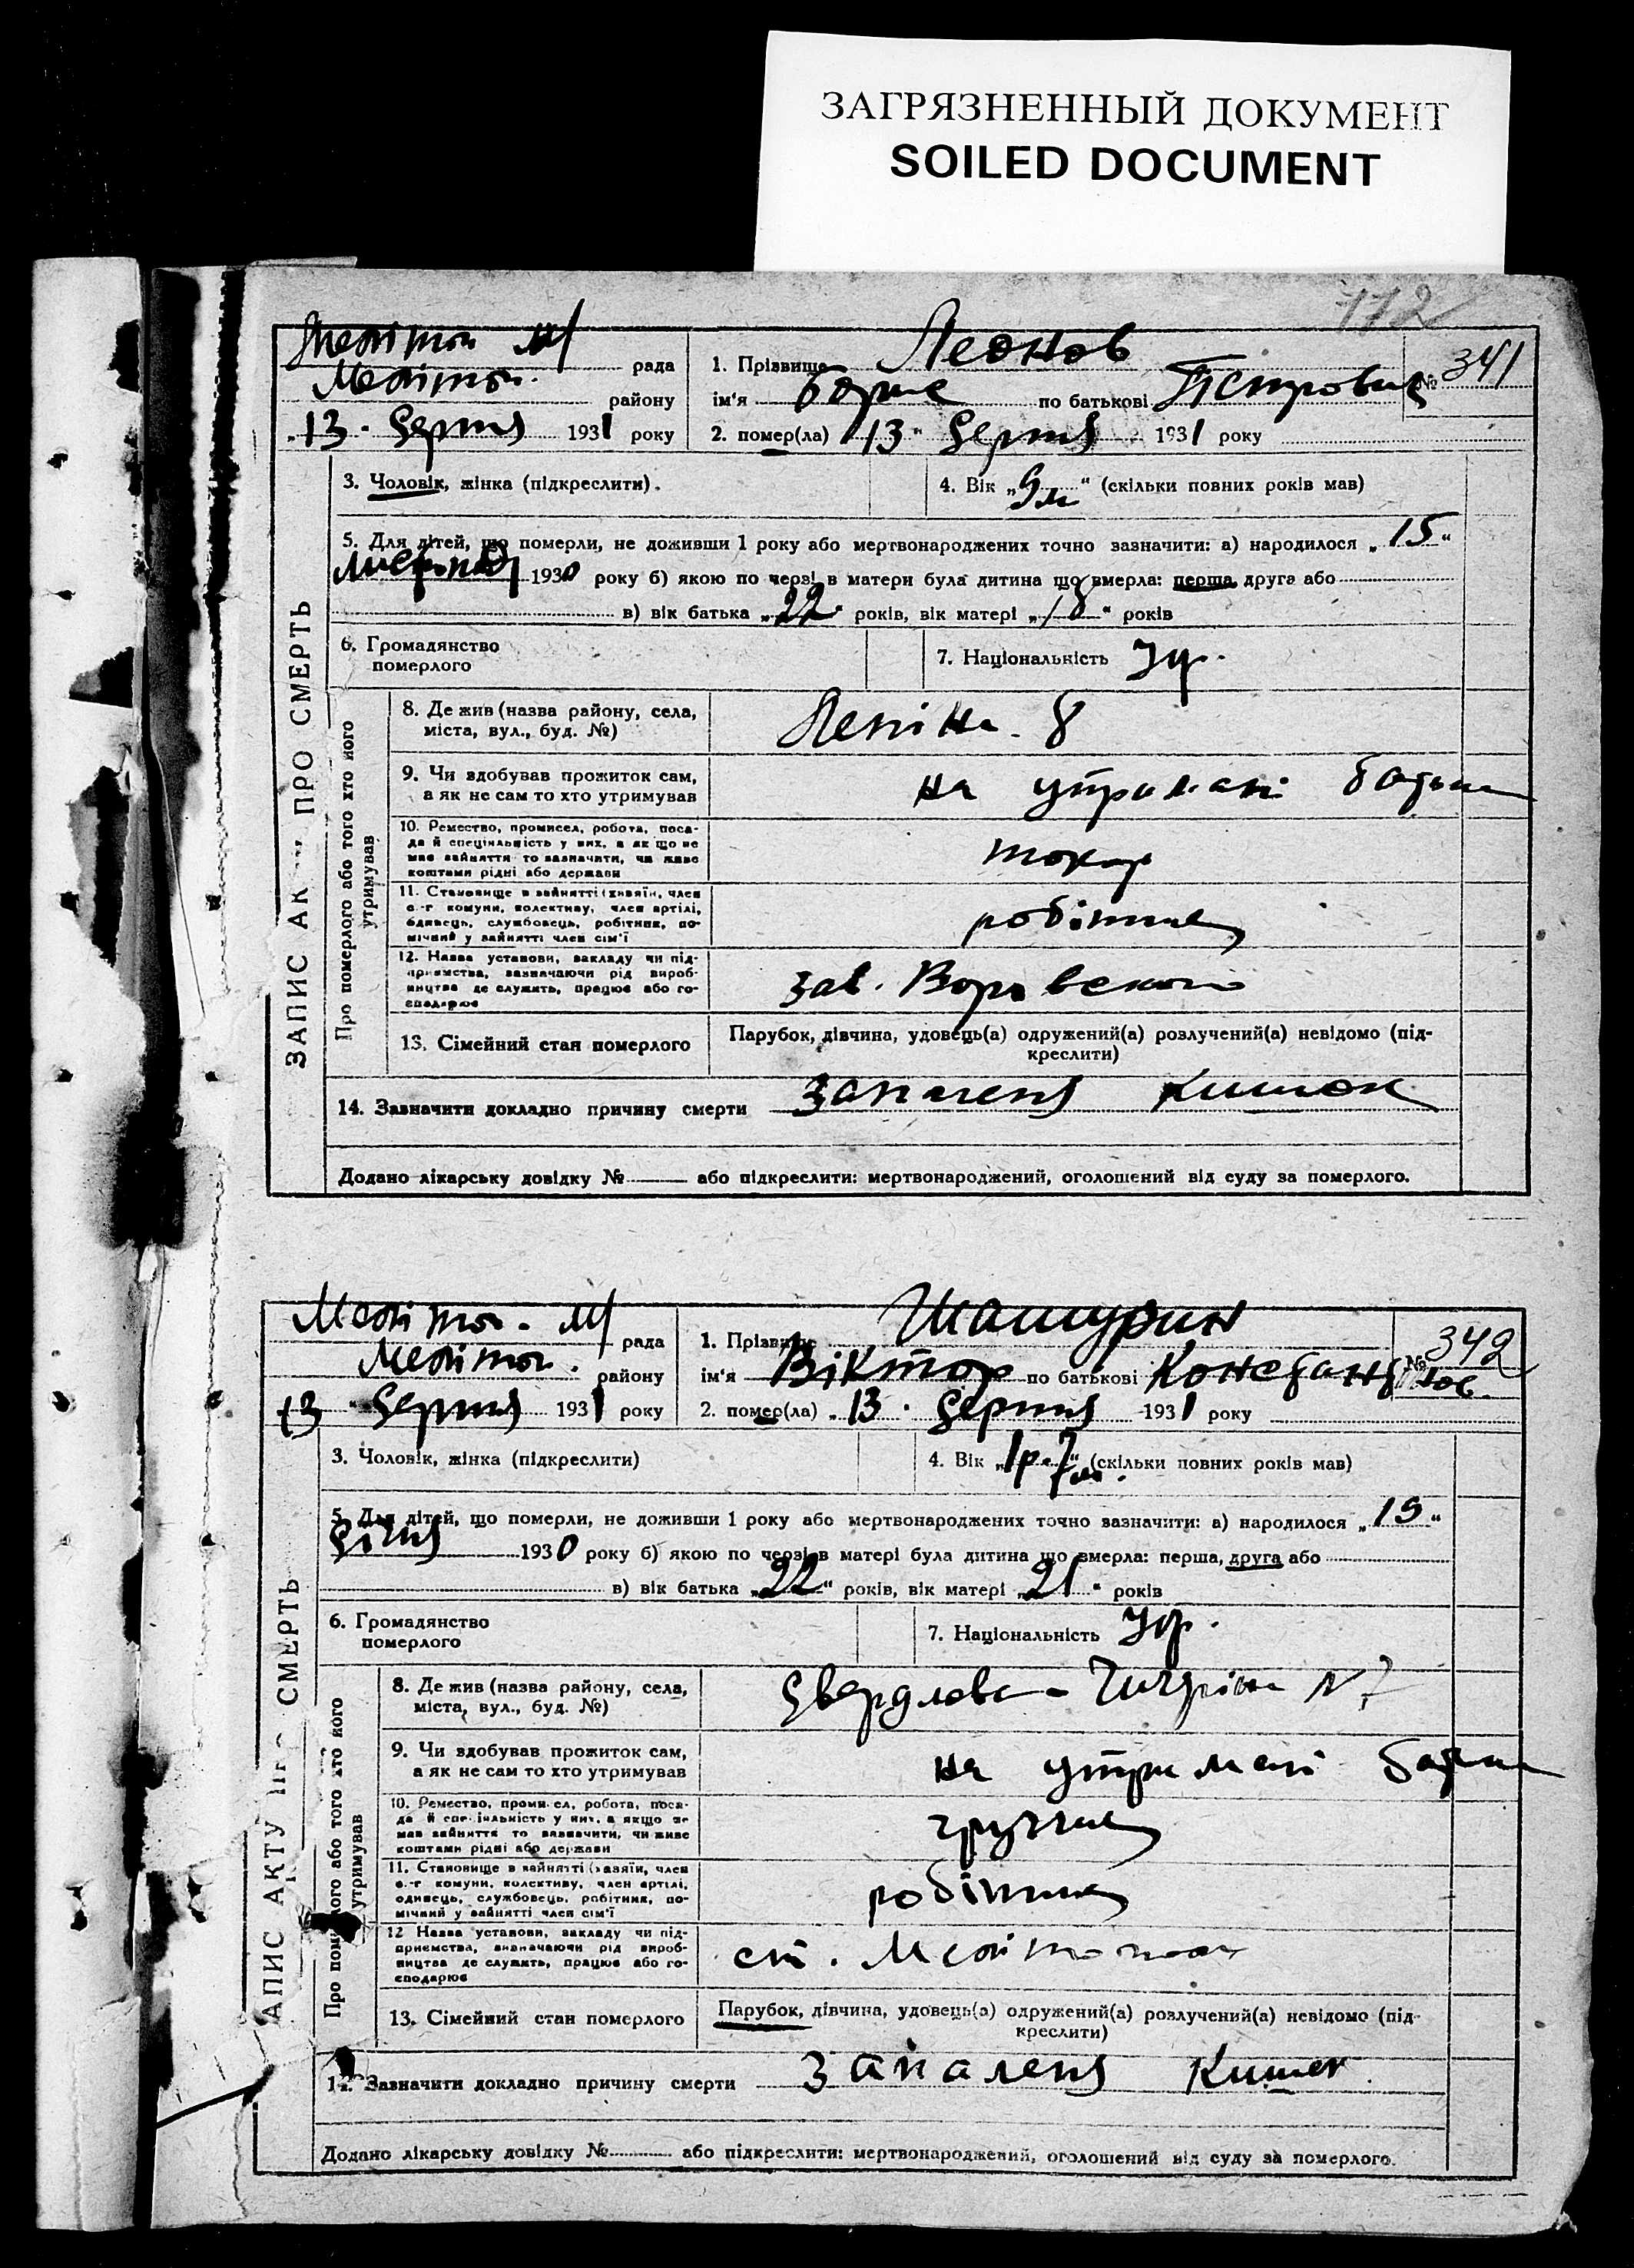 ЗАГРЯЗНЕННЫЙ ДОКУМЕНТ
SOILED DOCUMENT
172
Меліт рада
Меліт. району
„13" Серпня 1931 року
1. Прізвище Леонов
№ 341
ім'я Борис по батькові Петрович
2. помер(ла) „13" Серпня 1931 року
ЗАПИС АК ПРО СМЕРТЬ
3. Чоловік, жінка (підкреслити).
4. Вік „9 м" (скільки повних років мав)
5. Для дітей, що померли, не доживши 1 року або мертвонароджених точно зазначити: а) народилося „15"
1930 року б) якою по черзі в матери була дитина що вмерла: перша, друга або
в) вік батька „22" років, вік матері „18" років
6. Громадянство
померлого
7. Національність Укр.
Про померлого або того хто його
утримував
8. Де жив (назва району, села,
міста, вул., буд. №)
Леніна. 8
9. Чи здобував прожиток сам,
а як не сам то хто утримував
на утримані батька
10. Ремество, промисел, робота, поса-
да й спеціяльність у них, а як що не
мав зайняття то зазначити, чи живе
коштами рідні або держави
токар
11. Становище в зайнятті (хазяїн, член
с.-г комуни, колективу, член артілі,
одинець, службовець, робітник, по-
мічний у зайнятті член сім'ї
робітник
12. Назва установи, закладу чи під-
приємства, зазначаючи рід вироб-
ництва де служить, працює або го-
сподарює
зав. Воровського
13. Сімейний стан померлого
Парубок, дівчина, удовець(а) одружений(а) розлучений(а) невідомо (під-
креслити)
14. Зазначити докладно причину смерти Запаленя кишок
Додано лікарську довідку № або підкреслити: мертвонароджений, оголошений від суду за померлого.
Меліт. рада
Меліт. району
13 Серпня 1931 року
1. Прізвище Шашурин
№ 342
ім'я Віктор по батькові Констант
2. помер(ла) „13" Серпня 1931 року
АПИС АКТУ ПРО СМЕРТЬ
3. Чоловік, жінка (підкреслити)
4. Вік „1 р. 7 м." (скільки повних років мав)
5. Для дітей, що померли, не доживши 1 року або мертвонароджених точно зазначити: а) народилося „19"
Січня 1930 року б) якою по черзі в матері була дитина що вмерла: перша, друга або
в) вік батька „22" років, вік матері „21" років
6. Громадянство
померлого
7. Національність Укр.
Про померлого або того хто його
утримував
8. Де жив (назва району, села,
міста, вул., буд. №)
Свердлова - N 7
9. Чи здобував прожиток сам,
а як не сам то хто утримував
на утримані батька
10. Ремество, промисел, робота, поса-
да й спеціяльність у них, а якщо не
мав зайняття то зазначити, чи живе
коштами рідні або держави
грузчик
11. Становище в зайнятті (хазяїн, член
с.-г комуни, колективу, член артілі,
одинець, службовець, робітник, по-
мічний у зайнятті член сім'ї
робітник
12 Назва установи, закладу чи під-
приємства, визначаючи рід вироб-
ництва де служить, працює або го-
сподарює
ст. Мелітополь
13. Сімейний стан померлого
Парубок, дівчина, удовець(а) одружений(а) розлучений(а) невідомо (під-
креслити)
14. Зазначити докладно причину смерти Запаленя Кишек
Додано лікарську довідку № або підкреслити: мертвонароджений, оголошений від суду за померлого.